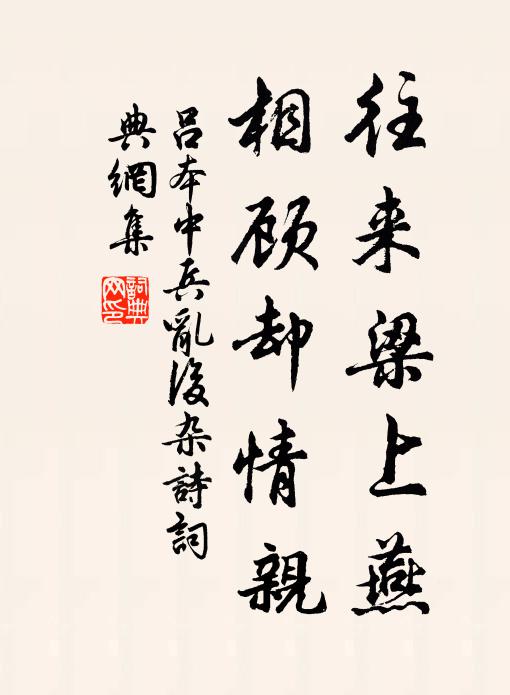 往来梁上燕
相顾却情親
吕本中兵亂後杂詩詞
典網集
詞典网印